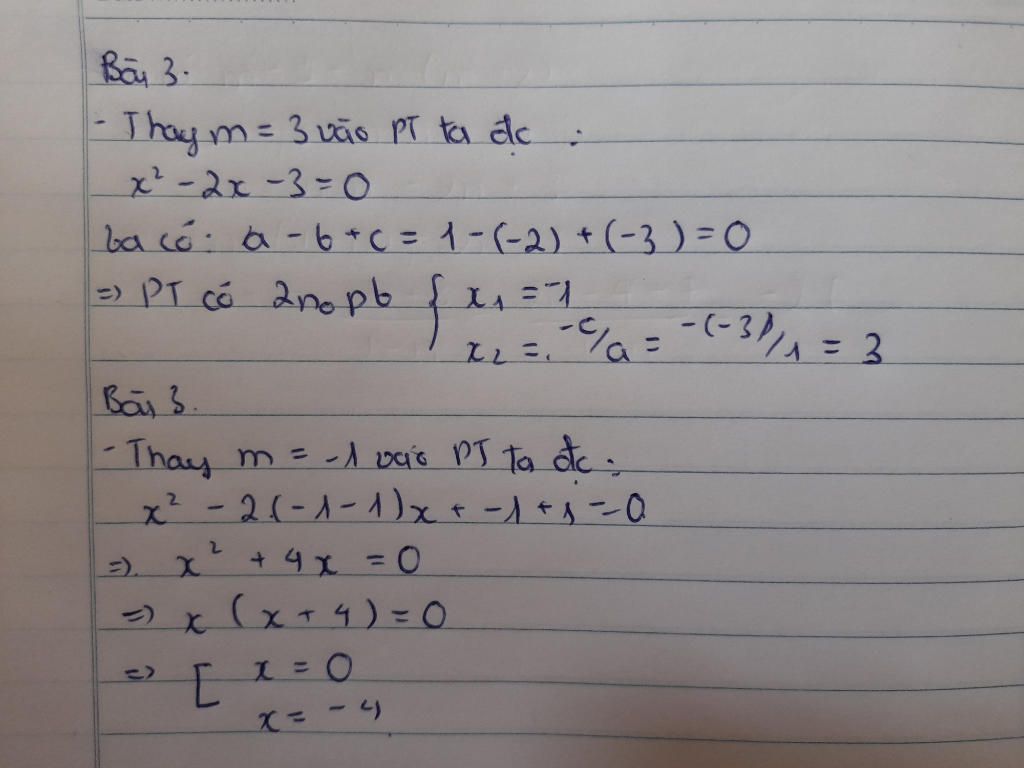 Bài 3.
- Thay m = 3 vào PT ta đc :
x² - 2x - 3 = 0
ta có: a - b + c = 1 - (-2) + (-3) = 0
=> PT có 2 no pb { x₁ = -1
x₂ = -c/a = -(-3)/1 = 3
Bài 3.
- Thay m = -1 vào PT ta đc :
x² - 2(-1-1)x + -1 + 1 = 0
=> x² + 4x = 0
=> x (x + 4) = 0
=> [ x = 0
x = -4